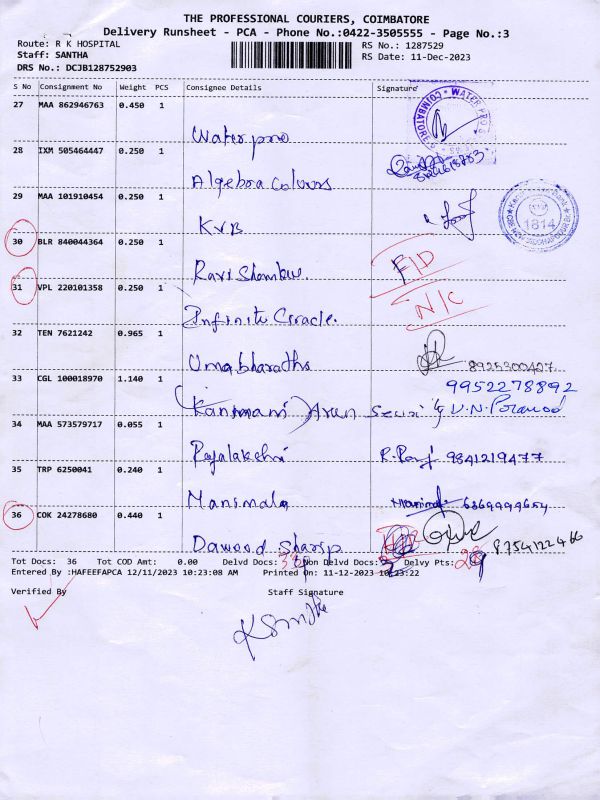 THE PROFESSIONAL COURIERS, COIMBATORE
Delivery Runsheet - PCA - Phone No.:0422-3505555 - Page No.:3
Route: R K HOSPITAL
Staff: SANTHA
DRS No.: DCJB128752903
RS No.: 1287529
RS Date: 11-Dec-2023
S No Consignment No Weight PCS Consignee Details Signature
27 MAA 862946763 0.450 1
Waterpro
COIMBATORE * WATER PRO
28 IXM 505464447 0.250 1
Algebra Colours
29 MAA 101910454 0.250 1
KVB
1814
30 BLR 840044364 0.250 1
Ravi Shankar. F/D
31 VPL 220101358 0.250 1
Infinite Ciracle. N/C
32 TEN 7621242 0.965 1
Umabharathi 8925300407
33 CGL 100018970 1.140 1
9952278892
Kanimani Arun
34 MAA 573579717 0.055 1
Rajalakshi 9841219477
35 TRP 6250041 0.240 1
Manimala 6369999654
36 COK 24278680 0.440 1
Dawood Sharip 8754122466
Tot Docs: 36 Tot COD Amt: 0.00 Delvd Docs: Non Delvd Docs: Delvy Pts:
Entered By :HAFEEFAPCA 12/11/2023 10:23:08 AM Printed On: 11-12-2023 10:23:22
Verified By Staff Signature